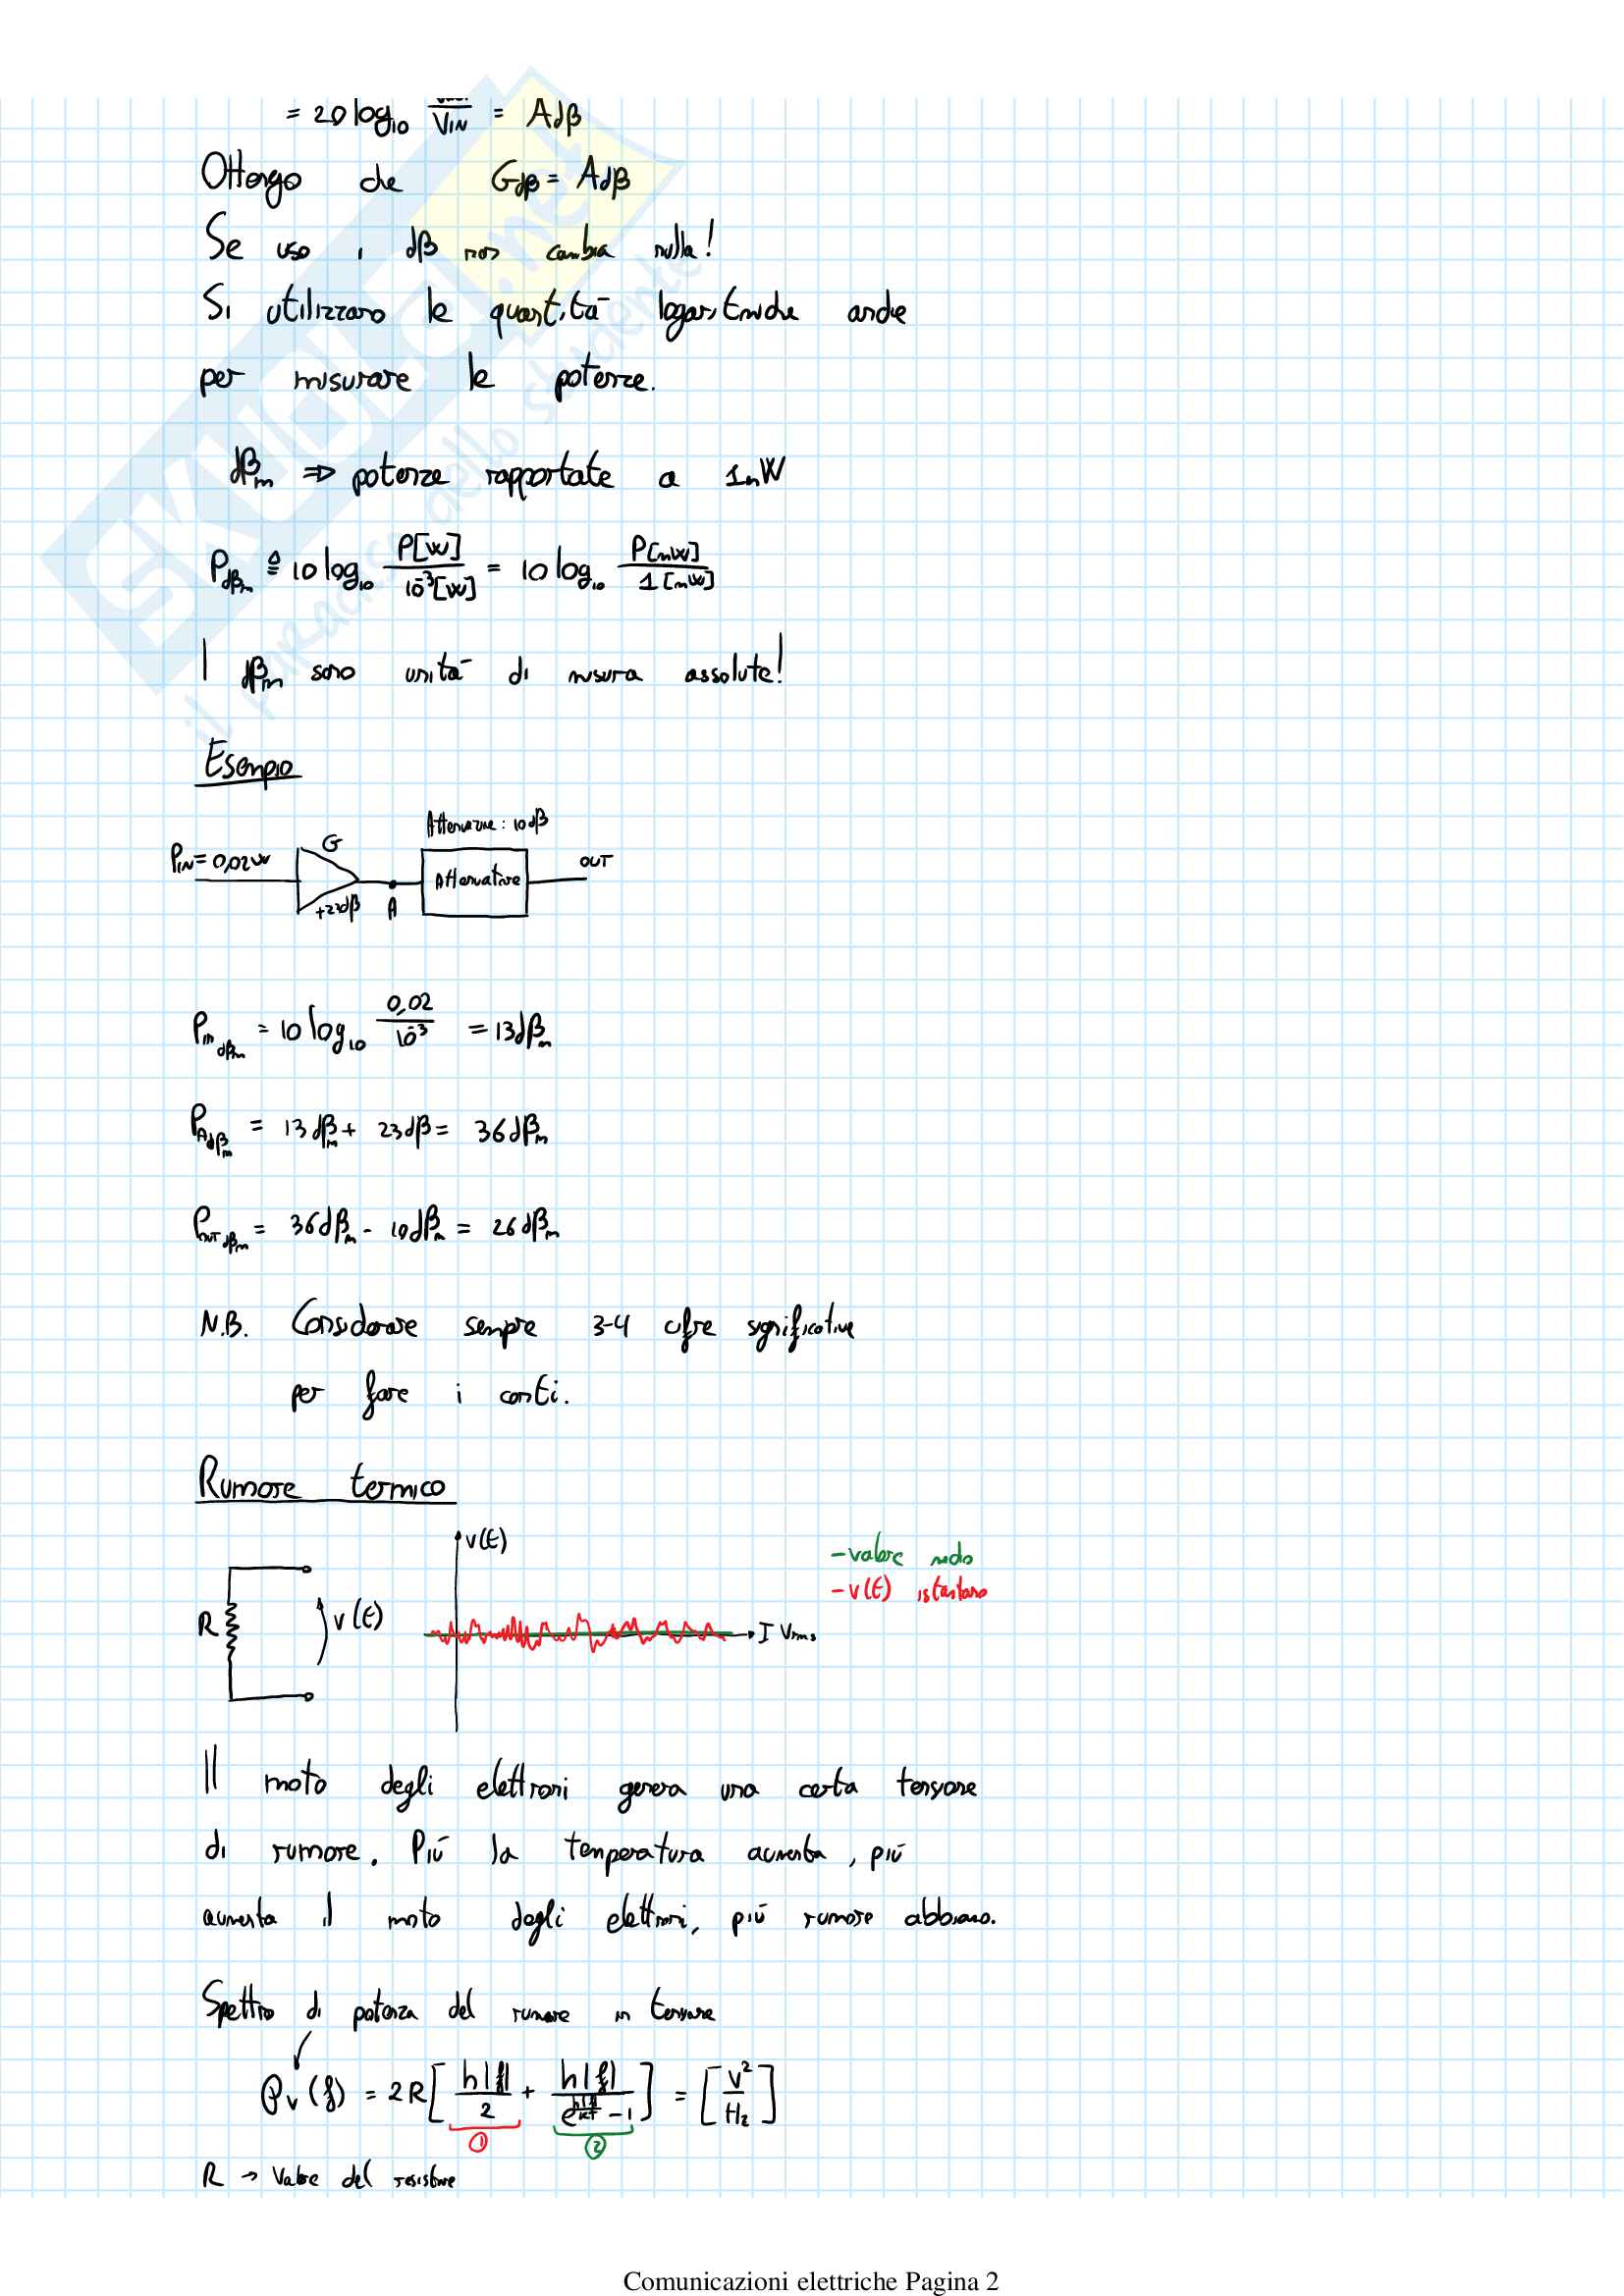 = 20 log10 Vout/VIN = AdB
Ottengo che GdB = AdB
Se uso i dB non cambia nulla!
Si utilizzano le quantità logaritmiche anche
per misurare le potenze.
dBm ⇒ potenze rapportate a 1mW
PdBm ≜ 10 log10 P[W]/10^-3[W] = 10 log10 P[mW]/1[mW]
I dBm sono unità di misura assolute!
Esempio
Attenuazione: 10dB
PIN = 0,02W G +23dB A Attenuatore OUT
Pin dBm = 10 log10 0,02/10^-3 = 13dBm
PA dBm = 13dBm + 23dB = 36dBm
POUT dBm = 36dBm - 10dBm = 26dBm
N.B. Considerare sempre 3-4 cifre significative
per fare i conti.
Rumore termico
v(t)
- valore medio
- v(t) istantaneo
R v(t) I Vrms
Il moto degli elettroni genera una certa tensione
di rumore. Più la temperatura aumenta, più
aumenta il moto degli elettroni, più rumore abbiamo.
Spettro di potenza del rumore in tensione
Pv(f) = 2R[h|f|/2 + h|f|/(e^(h|f|/KT) - 1)] = [V²/Hz]
① ②
R → Valore del resistore
SKUOLA.net
il paradiso dello studente
Comunicazioni elettriche Pagina 2